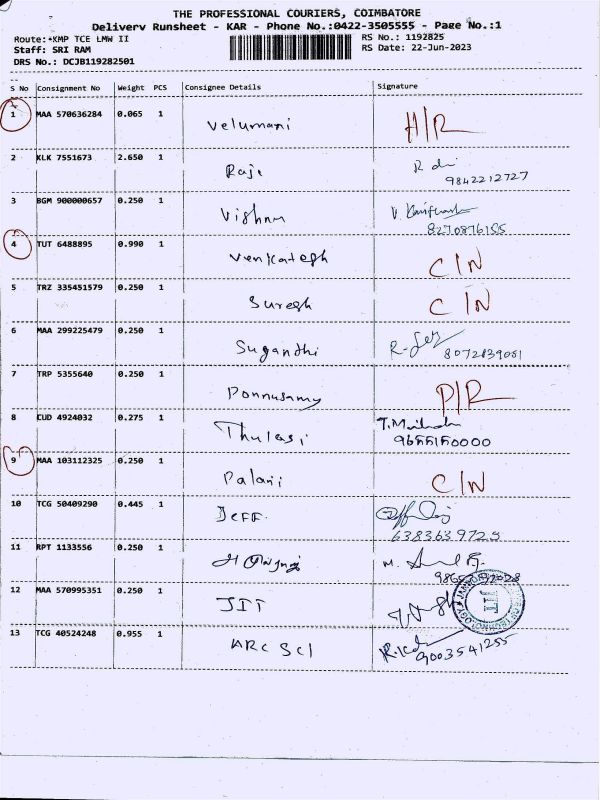 THE PROFESSIONAL COURIERS, COIMBATORE
Delivery Runsheet - KAR - Phone No.:0422-3505555 - Page No.:1
Route: KMP TCE LMW II RS No.: 1192825
Staff: SRI RAM RS Date: 22-Jun-2023
DRS No.: DCJB119282501
S No Consignment No Weight PCS Consignee Details Signature
1 MAA 570636284 0.065 1 Velumani H/R
2 KLK 7551673 2.650 1 Raji 9842212727
3 BGM 900000657 0.250 1 Vishnu 8270876155
4 TUT 6488895 0.990 1 Venkatesh C/N
5 TRZ 335451579 0.250 1 Suresh C/N
6 MAA 299225479 0.250 1 Sugandhi 8072839081
7 TRP 5355640 0.250 1 Ponnusamy P/R
8 CUD 4924032 0.275 1 Thulasi
9 MAA 103112325 0.250 1 Palani C/N
10 TCG 50409290 0.445 1 Jeff 6383639725
11 RPT 1133556 0.250 1
12 MAA 570995351 0.250 1 JIT
13 TCG 40524248 0.955 1 ARC SCI 9003541255